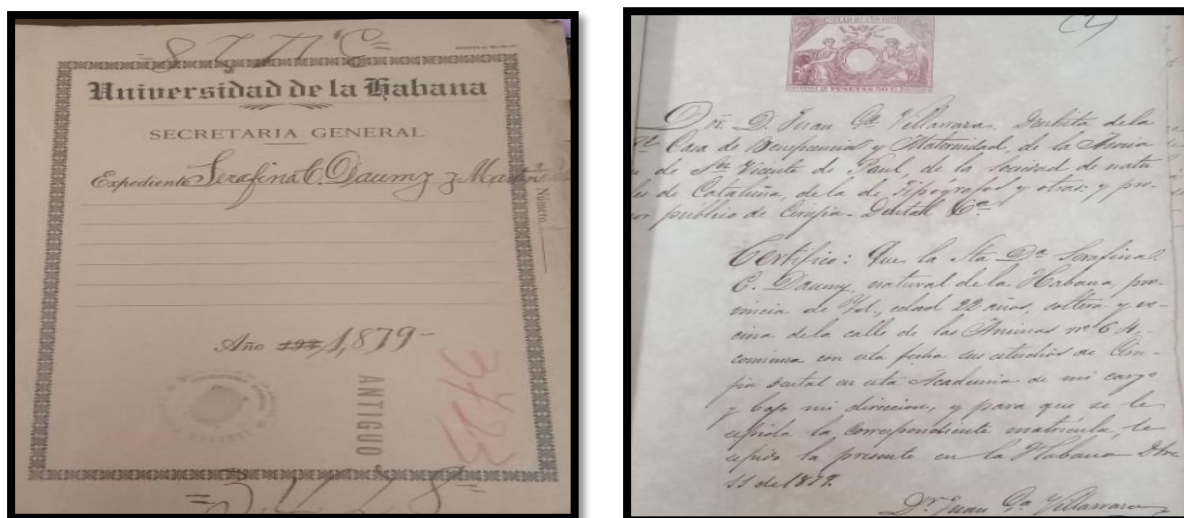 = 8 J. 77 C =
Universidad de la Habana
SECRETARIA GENERAL
Expediente Serafina C. Daumy y Martin
Número
Año 1,879-
ANTIGUO
3423
PESETAS 50 C.
(2)
Dor. D. Juan Ga. Villarraza, Dentista de la
Casa de Beneficencia y Maternidad, de la
de Sn. Vicente de Paul, de la Sociedad de natu
de Cataluña, de la de Tipografos y otras: y pro-
publico de Cirujia-Dental &a.
Certifico: Que la Sta Da. Serafina
C. Daumy, natural de la Habana, pro-
vincia de Yd., edad 22 años, soltera y ve-
cina de la calle de las Animas no 64.
comiensa con esta fecha sus estudios de Ciru-
jia dental en esta Academia de mi cargo
y bajo mi direccion, y para que se le
espida la correspondiente matricula, le
espido la presente en la Habana Dbre
11 de 1879.
Dr. Juan Ga. Villarraza